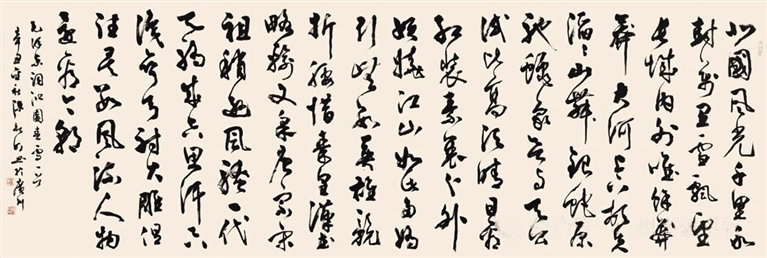 北國風光千里冰
封萬里雪飄望
長城内外唯餘莽
莽大河上下頓失
滔滔山舞銀蛇原
馳蠟象欲與天公
試比高須晴日看
紅裝素裹分外
妖嬈江山如此多嬌
引無數英雄競
折腰惜秦皇漢武
略輸文采唐宗宋
祖稍遜風騷一代
天驕成吉思汗只
識彎弓射大雕俱
往矣數風流人物
還看今朝
毛澤東詞沁園春雪一首
辛丑年秋張於廣州